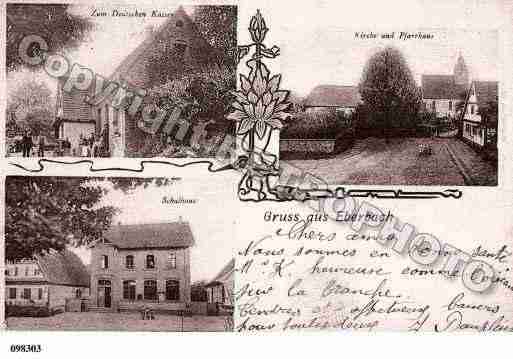 Zum Deutschen Kaiser
Kirche und Pfarrhaus
Schulhaus
Gruss aus Eberbach
Chers amis
Nous sommes en bonne santé
M. K heureuse comme
sur la branche.
et affectueux baisers
pour toutes deux
Copyright PROVINPHOTO
098303